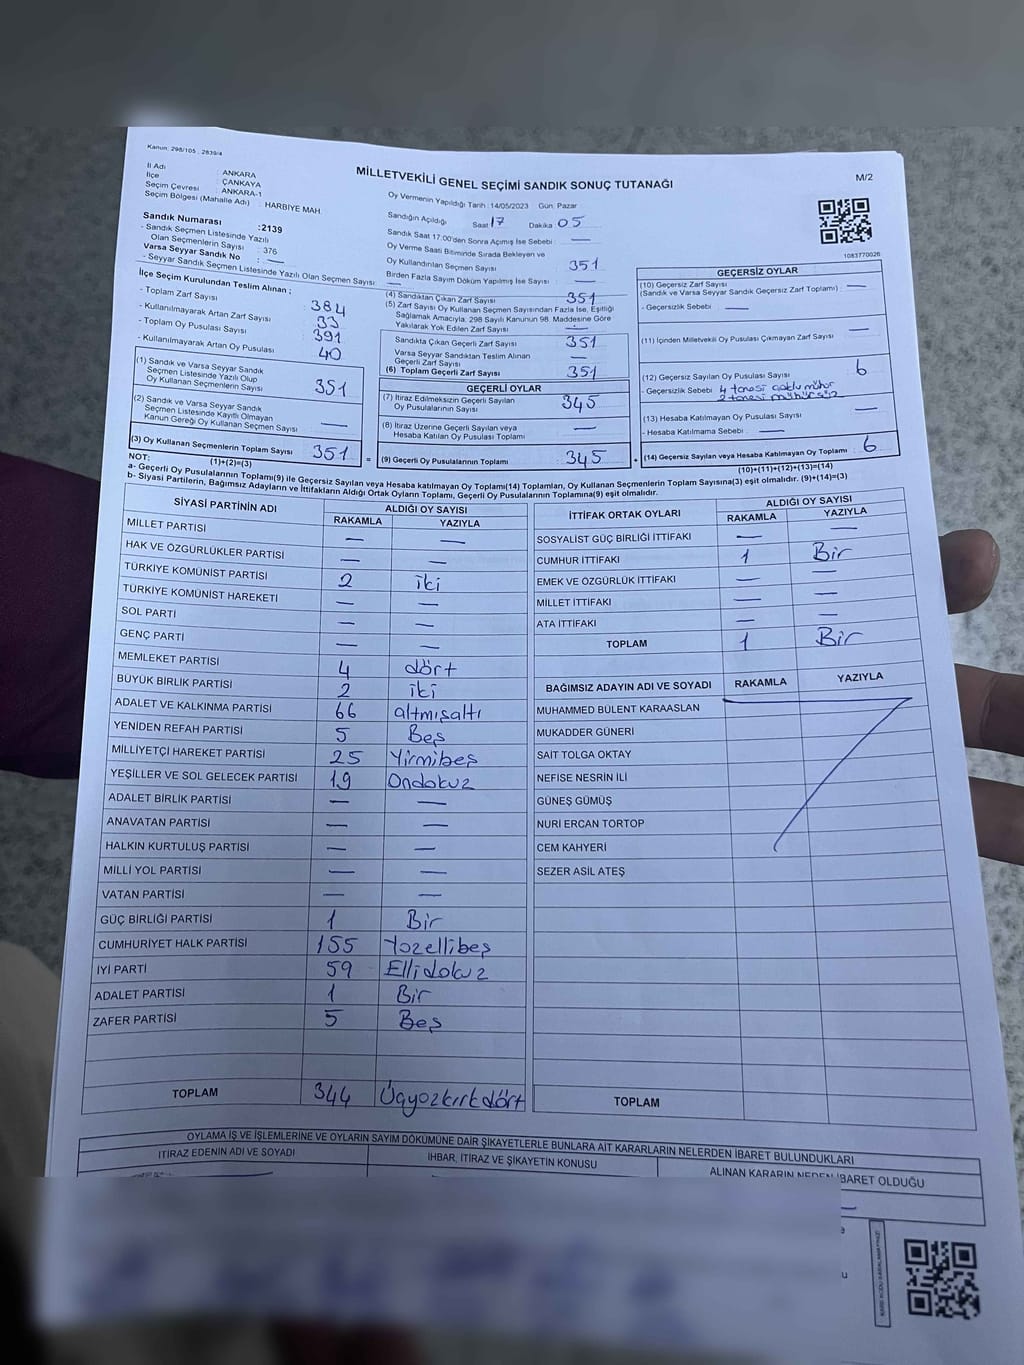 Kanun: 298/105 . 2839/4
İl Adı : ANKARA
İlçe : ÇANKAYA
Seçim Çevresi : ANKARA-1
Seçim Bölgesi (Mahalle Adı) : HARBİYE MAH.
Sandık Numarası :2139
- Sandık Seçmen Listesinde Yazılı
Olan Seçmenlerin Sayısı : 376
Varsa Seyyar Sandık No : —
- Seyyar Sandık Seçmen Listesinde Yazılı Olan Seçmen Sayısı : —
MİLLETVEKİLİ GENEL SEÇİMİ SANDIK SONUÇ TUTANAĞI
M/2
Oy Vermenin Yapıldığı Tarih : 14/05/2023 Gün: Pazar
Sandığın Açıldığı Saat 17 Dakika 05
Sandık Saat 17.00'den Sonra Açımış İse Sebebi : —
Oy Verme Saati Bitiminde Sırada Bekleyen ve
Oy Kullandırılan Seçmen Sayısı 351
Birden Fazla Sayım Döküm Yapılmış İse Sayısı : —
1083770026
İlçe Seçim Kurulundan Teslim Alınan ;
- Toplam Zarf Sayısı 384
- Kullanılmayarak Artan Zarf Sayısı 33
- Toplam Oy Pusulası Sayısı 391
- Kullanılmayarak Artan Oy Pusulası 40
(1) Sandık ve Varsa Seyyar Sandık
Seçmen Listesinde Yazılı Olup
Oy Kullanan Seçmenlerin Sayısı 351
(2) Sandık ve Varsa Seyyar Sandık
Seçmen Listesinde Kayıtlı Olmayan
Kanun Gereği Oy Kullanan Seçmen Sayısı —
(3) Oy Kullanan Seçmenlerin Toplam Sayısı 351
(1)+(2)=(3)
(4) Sandıktan Çıkan Zarf Sayısı 351
(5) Zarf Sayısı Oy Kullanan Seçmen Sayısından Fazla İse, Eşitliği
Sağlamak Amacıyla, 298 Sayılı Kanunun 98. Maddesine Göre
Yakılarak Yok Edilen Zarf Sayısı —
Sandıkta Çıkan Geçerli Zarf Sayısı 351
Varsa Seyyar Sandıktan Teslim Alınan
Geçerli Zarf Sayısı —
(6) Toplam Geçerli Zarf Sayısı 351
GEÇERLİ OYLAR
(7) İtiraz Edilmeksizin Geçerli Sayılan
Oy Pusulalarının Sayısı 345
(8) İtiraz Üzerine Geçerli Sayılan veya
Hesaba Katılan Oy Pusulası Toplamı —
= (9) Geçerli Oy Pusulalarının Toplamı 345 +
GEÇERSİZ OYLAR
(10) Geçersiz Zarf Sayısı
(Sandık ve Varsa Seyyar Sandık Geçersiz Zarf Toplamı) : —
- Geçersizlik Sebebi : —
(11) İçinden Milletvekili Oy Pusulası Çıkmayan Zarf Sayısı —
(12) Geçersiz Sayılan Oy Pusulası Sayısı 6
- Geçersizlik Sebebi : 4 tanesi çoklu mühür
2 tanesi mühürsüz
(13) Hesaba Katılmayan Oy Pusulası Sayısı —
- Hesaba Katılmama Sebebi : —
(14) Geçersiz Sayılan veya Hesaba Katılmayan Oy Toplamı : 6
(10)+(11)+(12)+(13)=(14)
NOT:
a- Geçerli Oy Pusulalarının Toplamı(9) ile Geçersiz Sayılan veya Hesaba katılmayan Oy Toplamı(14) Toplamları, Oy Kullanan Seçmenlerin Toplam Sayısına(3) eşit olmalıdır. (9)+(14)=(3)
b- Siyasi Partilerin, Bağımsız Adayların ve İttifakların Aldığı Ortak Oyların Toplamı, Geçerli Oy Pusulalarının Toplamına(9) eşit olmalıdır.
SİYASİ PARTİNİN ADI ALDIĞI OY SAYISI
RAKAMLA YAZIYLA
MİLLET PARTİSİ — —
HAK VE ÖZGÜRLÜKLER PARTİSİ — —
TÜRKİYE KOMÜNİST PARTİSİ 2 iki
TÜRKİYE KOMÜNİST HAREKETİ — —
SOL PARTİ — —
GENÇ PARTİ — —
MEMLEKET PARTİSİ 4 dört
BÜYÜK BİRLİK PARTİSİ 2 iki
ADALET VE KALKINMA PARTİSİ 66 altmışaltı
YENİDEN REFAH PARTİSİ 5 Beş
MİLLİYETÇİ HAREKET PARTİSİ 25 Yirmibeş
YEŞİLLER VE SOL GELECEK PARTİSİ 19 Ondokuz
ADALET BİRLİK PARTİSİ — —
ANAVATAN PARTİSİ — —
HALKIN KURTULUŞ PARTİSİ — —
MİLLİ YOL PARTİSİ — —
VATAN PARTİSİ — —
GÜÇ BİRLİĞİ PARTİSİ 1 Bir
CUMHURİYET HALK PARTİSİ 155 Yüzellibeş
İYİ PARTİ 59 Ellidokuz
ADALET PARTİSİ 1 Bir
ZAFER PARTİSİ 5 Beş
TOPLAM 344 Üçyüzkırkdört
İTTİFAK ORTAK OYLARI ALDIĞI OY SAYISI
RAKAMLA YAZIYLA
SOSYALİST GÜÇ BİRLİĞİ İTTİFAKI — —
CUMHUR İTTİFAKI 1 Bir
EMEK VE ÖZGÜRLÜK İTTİFAKI — —
MİLLET İTTİFAKI — —
ATA İTTİFAKI — —
TOPLAM 1 Bir
BAĞIMSIZ ADAYIN ADI VE SOYADI RAKAMLA YAZIYLA
MUHAMMED BÜLENT KARAASLAN
MUKADDER GÜNERİ
SAİT TOLGA OKTAY
NEFİSE NESRİN İLİ
GÜNEŞ GÜMÜŞ
NURİ ERCAN TORTOP
CEM KAHYERİ
SEZER ASİL ATEŞ
TOPLAM
OYLAMA İŞ VE İŞLEMLERİNE VE OYLARIN SAYIM DÖKÜMÜNE DAİR ŞİKAYETLERLE BUNLARA AİT KARARLARIN NELERDEN İBARET BULUNDUKLARI
İTİRAZ EDENİN ADI VE SOYADI İHBAR, İTİRAZ VE ŞİKAYETİN KONUSU ALINAN KARARIN NEDEN İBARET OLDUĞU